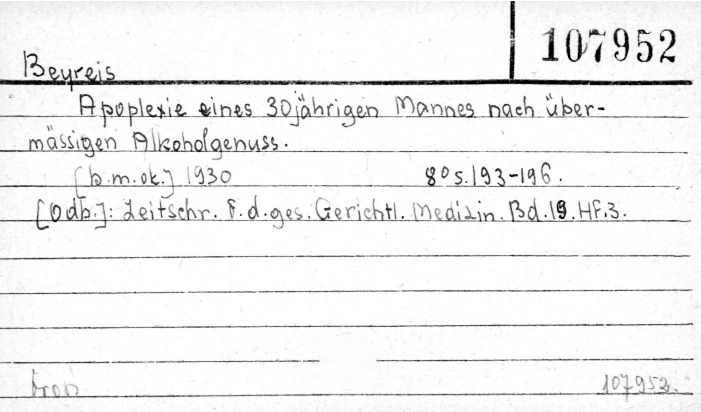 107952
Beyreis
Apoplexie eines 30jährigen Mannes nach über-
mässigen Alkoholgenuss.
[b.m.ok.] 1930 8° s.193-196.
[Odb.]: Zeitschr. f.d.ges. Gerichtl. Medizin. Bd.19. Hf.3.
107952.